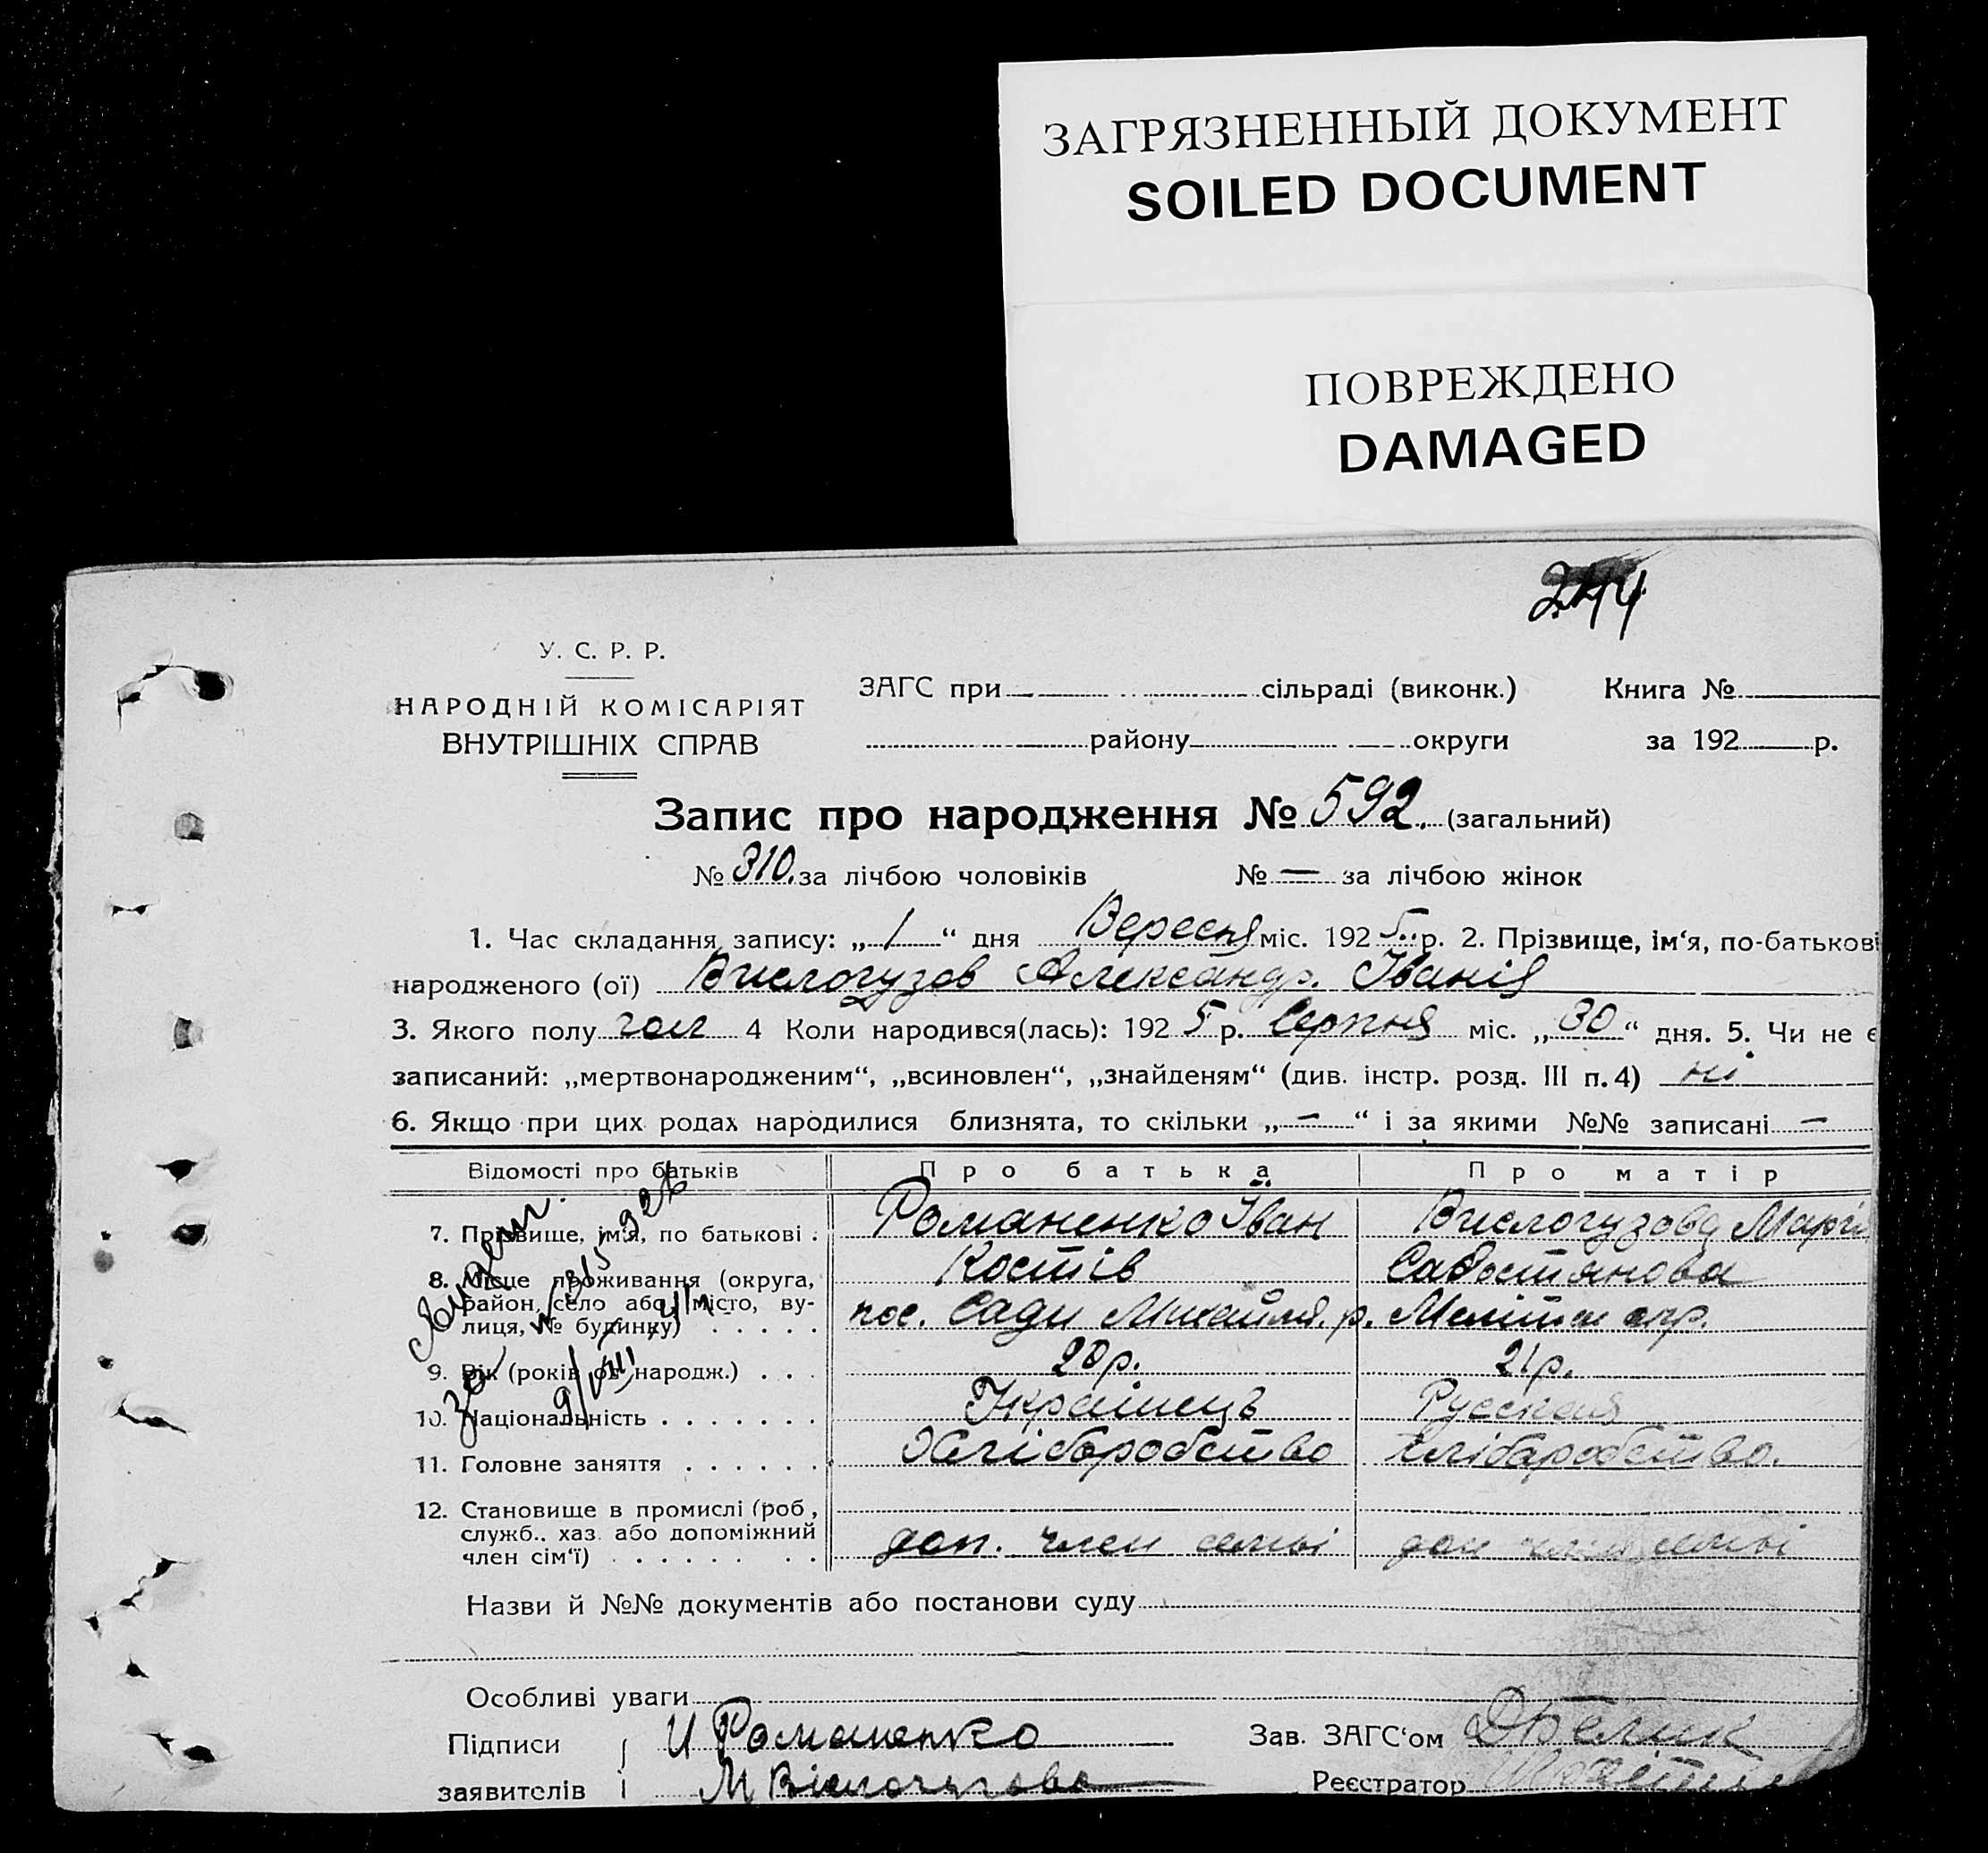 ЗАГРЯЗНЕННЫЙ ДОКУМЕНТ
SOILED DOCUMENT
ПОВРЕЖДЕНО
DAMAGED
244
У. С. Р. Р.
НАРОДНІЙ КОМІСАРІЯТ
ВНУТРІШНІХ СПРАВ
ЗАГС при сільраді (виконк.) Книга №
району округи за 192 р.
Запис про народження № 592. (загальний)
№ 310. за лічбою чоловіків № — за лічбою жінок
1. Час складання запису: „ 1 “ дня Вересня міс. 192 5 р. 2. Прізвище, ім‘я, по-батькові
народженого (ої) Вислогузов Александр. Іванів
3. Якого полу чол 4 Коли народився(лась): 192 5 р. Серпня міс. „ 30 “ дня. 5. Чи не є
записаний: „мертвонародженим“, „всиновлен“, „знайденям“ (див. інстр. розд. III п. 4) ні
6. Якщо при цих родах народилися близнята, то скільки „ — “ і за якими №№ записані —
Відомості про батьків Про батька Про матір
7. Прізвище, ім‘я, по батькові . Романенко Іван Вислогузова Марі
Костів Савостянова
8. Місце проживання (округа, район, село або місто, ву-
лиця, № будинку) . . . . . пос. Сади р. окр.
9. Рік (років од народж.) . . . 20 р. 21 р.
10. Національність . . . . . . . Українець Русская
11. Головне заняття . . . . . . Хлібробство хлібаробство.
12. Становище в промислі (роб.,
служб., хаз. або допоміжний
член сім‘ї) . . . . . . . . доп. член семьі доп член семьі
Назви й №№ документів або постанови суду
Особливі уваги
Підписи И Романенко Зав. ЗАГС‘ом
заявителів М Реєстратор